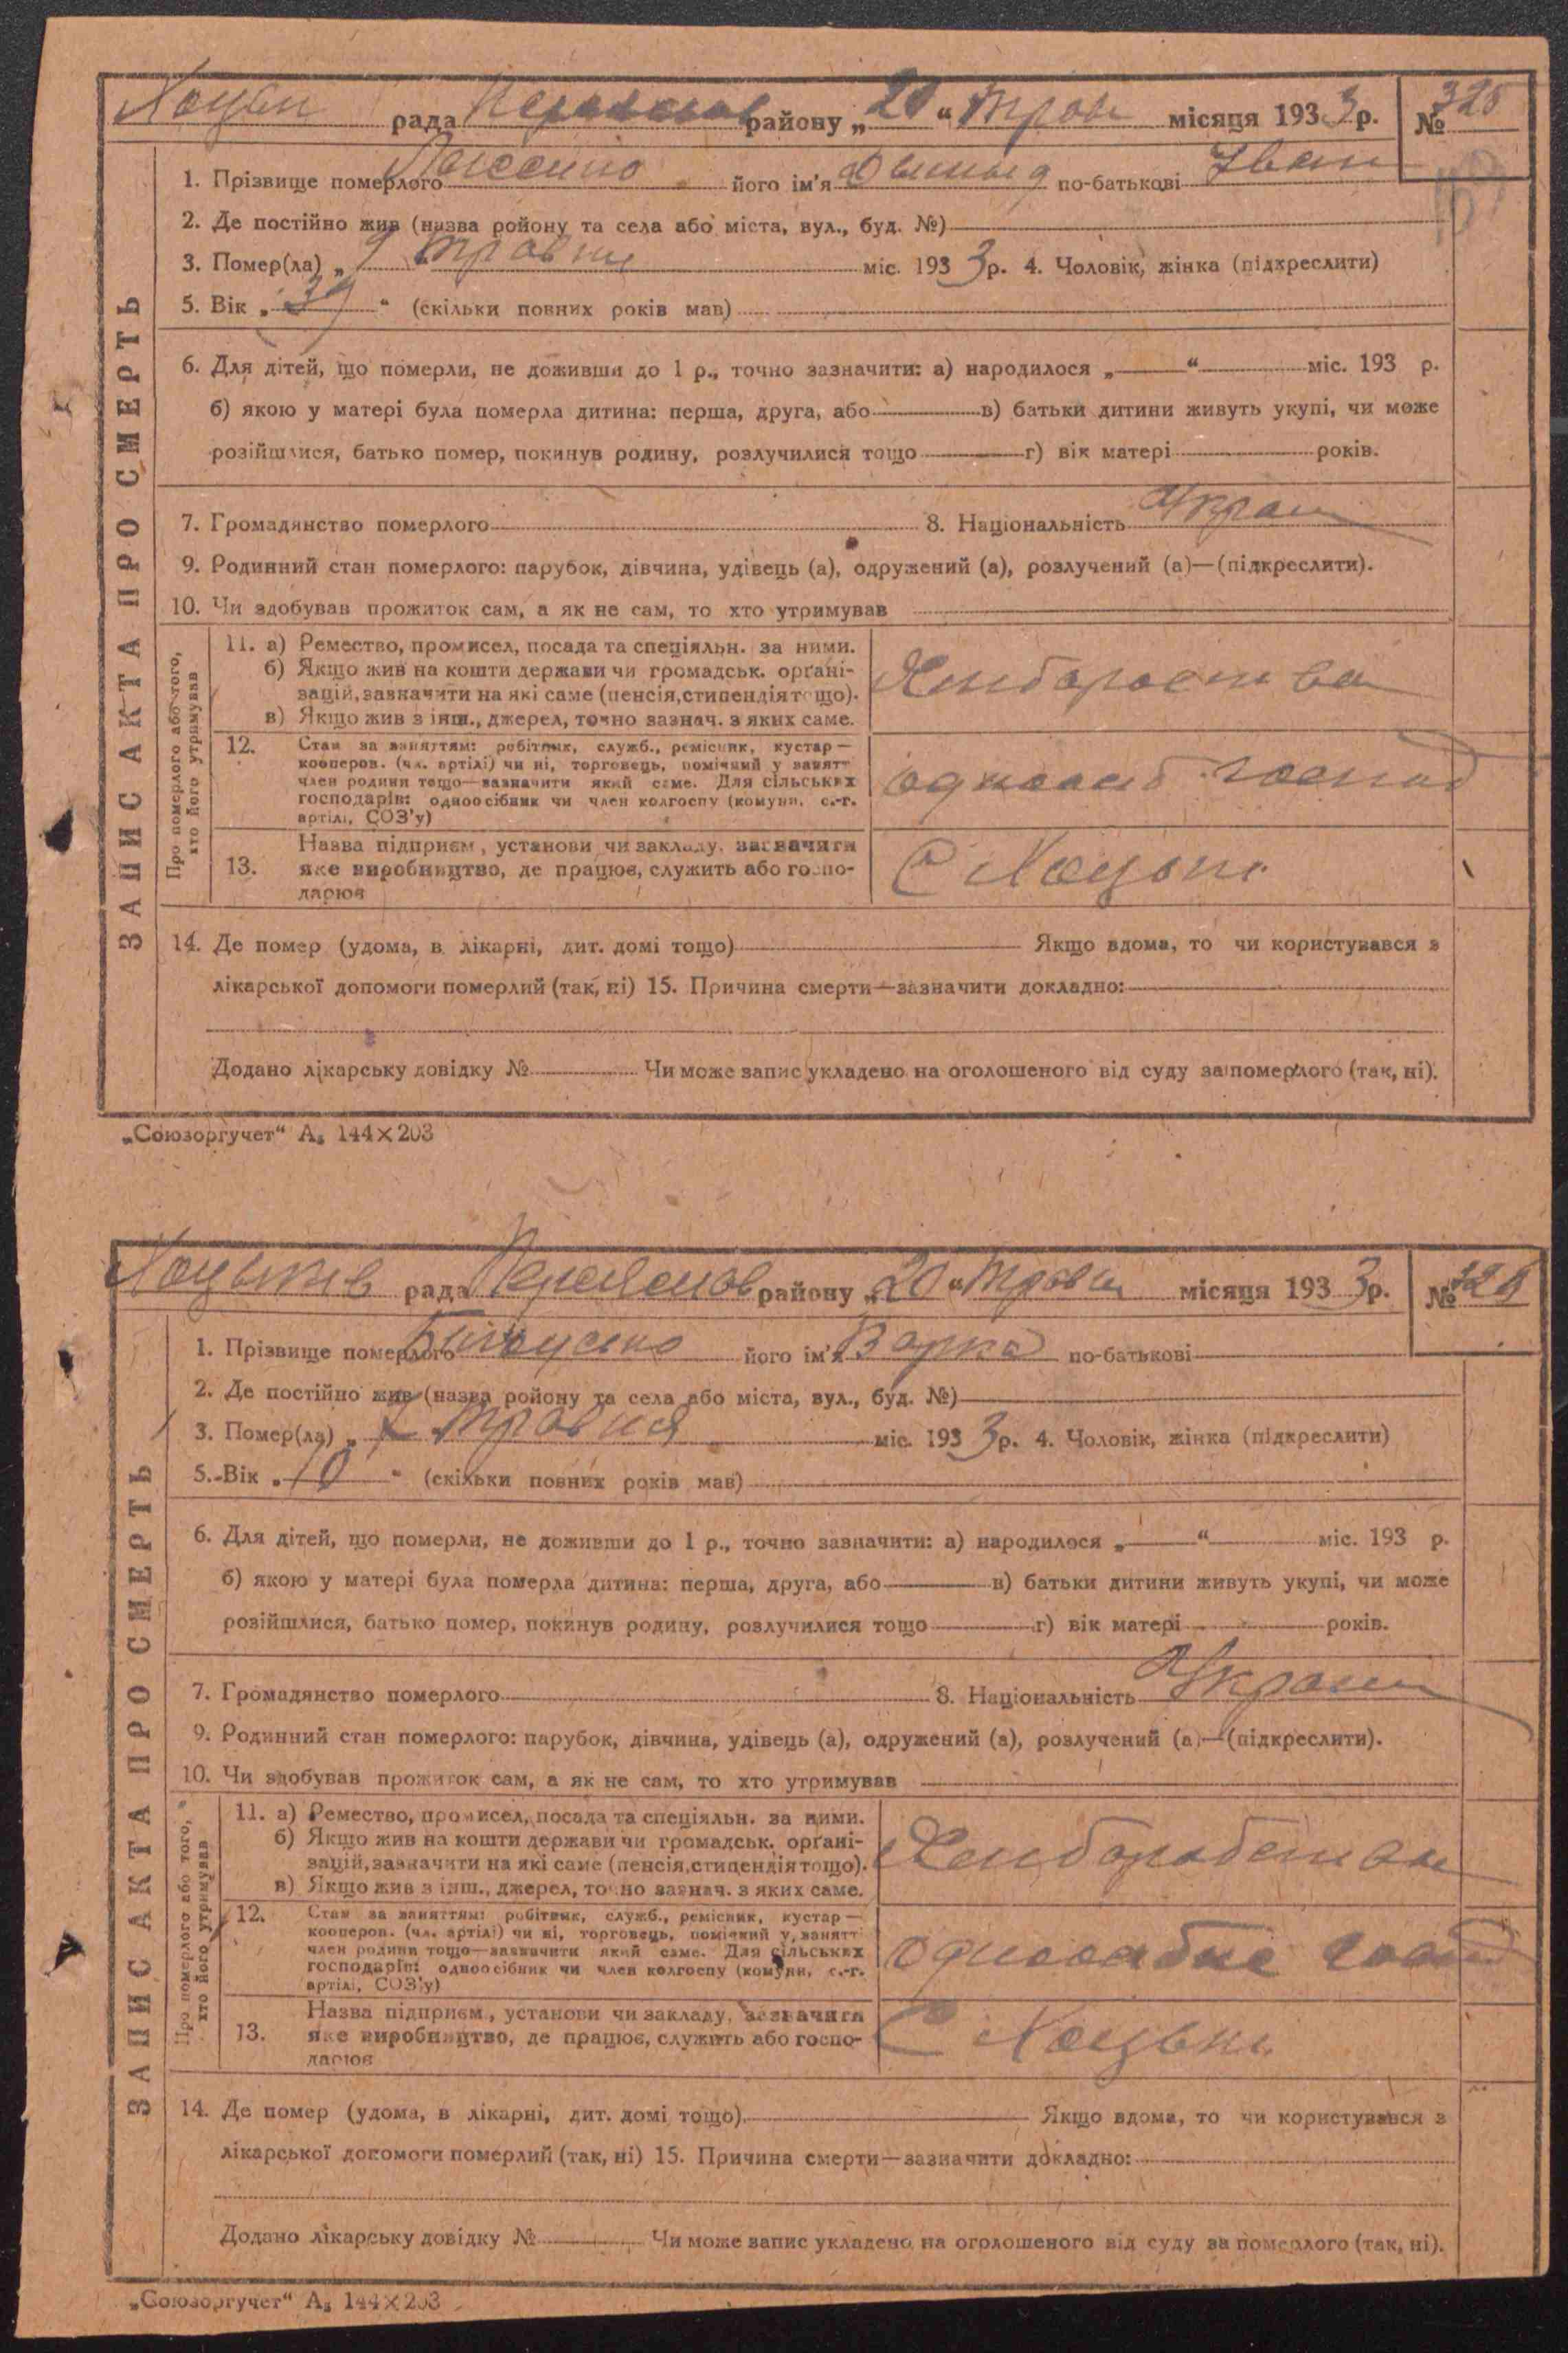 рада району „20“ Трав місяця 1933 р. № 325
1. Прізвище померлого його ім'я по-батькові Іван
2. Де постійно жив (назва ройону та села або міста, вул., буд. №)
3. Помер(ла) „ травня міс. 1933 р. 4. Чоловік, жінка (підкреслити)
5. Вік „ “ (скільки повних років мав)
6. Для дітей, що померли, не доживши до 1 р., точно зазначити: а) народилося „ “ міс. 193 р.
б) якою у матері була померла дитина: перша, друга, або в) батьки дитини живуть укупі, чи може
розійшлися, батько помер, покинув родину, розлучилися тощо г) вік матері років.
7. Громадянство померлого 8. Національність Украин
9. Родинний стан померлого: парубок, дівчина, удівець (а), одружений (а), розлучений (а)—(підкреслити).
10. Чи здобував прожиток сам, а як не сам, то хто утримував
ЗАПИС АКТА ПРО СМЕРТЬ
Про померлого або того,
хто його утримував
11. а) Ремество, промисел, посада та спеціяльн. за ними.
б) Якщо жив на кошти держави чи громадськ. орґані-
зацій, зазначити на які саме (пенсія, стипендія тощо).
в) Якщо жив з інш., джерел, точно зазнач. з яких саме.
12. Стан за заняттям: робітник, служб., ремісник, кустар—
кооперов. (чл. артілі) чи ні, торговець, помічний у занятт
член родини тощо—зазначити який саме. Для сільських
господарів: одноосібник чи член колгоспу (комуни, с.-г.
артілі, СОЗ'у)
одноосіб. господ
13. Назва підприєм., установи чи закладу, зазначити
яке виробництво, де працює, служить або госпо-
дарює
С Хоцьки
14. Де помер (удома, в лікарні, дит. домі тощо) Якщо вдома, то чи користувався з
лікарської допомоги померлий (так, ні) 15. Причина смерти—зазначити докладно:
Додано лікарську довідку № Чи може запис укладено на оголошеного від суду за померлого (так, ні).
„Союзоргучет“ А₅ 144×203
Хоцьків рада Переяслов району „20“ Травн місяця 1933 р. № 326
1. Прізвище померлого його ім'я Варка по-батькові
2. Де постійно жив (назва ройону та села або міста, вул., буд. №)
3. Помер(ла) „ травня міс. 1933 р. 4. Чоловік, жінка (підкреслити)
5. Вік „10“ (скільки повних років мав)
6. Для дітей, що померли, не доживши до 1 р., точно зазначити: а) народилося „ “ міс. 193 р.
б) якою у матері була померла дитина: перша, друга, або в) батьки дитини живуть укупі, чи може
розійшлися, батько помер, покинув родину, розлучилися тощо г) вік матері років.
7. Громадянство померлого 8. Національність Украин
9. Родинний стан померлого: парубок, дівчина, удівець (а), одружений (а), розлучений (а)—(підкреслити).
10. Чи здобував прожиток сам, а як не сам, то хто утримував
ЗАПИС АКТА ПРО СМЕРТЬ
Про померлого або того,
хто його утримував
11. а) Ремество, промисел, посада та спеціяльн. за ними.
б) Якщо жив на кошти держави чи громадськ. орґані-
зацій, зазначити на які саме (пенсія, стипендія тощо).
в) Якщо жив з інш., джерел, точно зазнач. з яких саме.
12. Стан за заняттям: робітник, служб., ремісник, кустар—
кооперов. (чл. артілі) чи ні, торговець, помічний у занятт
член родини тощо—зазначити який саме. Для сільських
господарів: одноосібник чи член колгоспу (комуни, с.-г.
артілі, СОЗ'у)
13. Назва підприєм., установи чи закладу, зазначити
яке виробництво, де працює, служить або госпо-
дарює
С Хоцьки
14. Де помер (удома, в лікарні, дит. домі тощо) Якщо вдома, то чи користувався з
лікарської допомоги померлий (так, ні) 15. Причина смерти—зазначити докладно:
Додано лікарську довідку № Чи може запис укладено на оголошеного від суду за померлого (так, ні).
„Союзоргучет“ А₅ 144×203